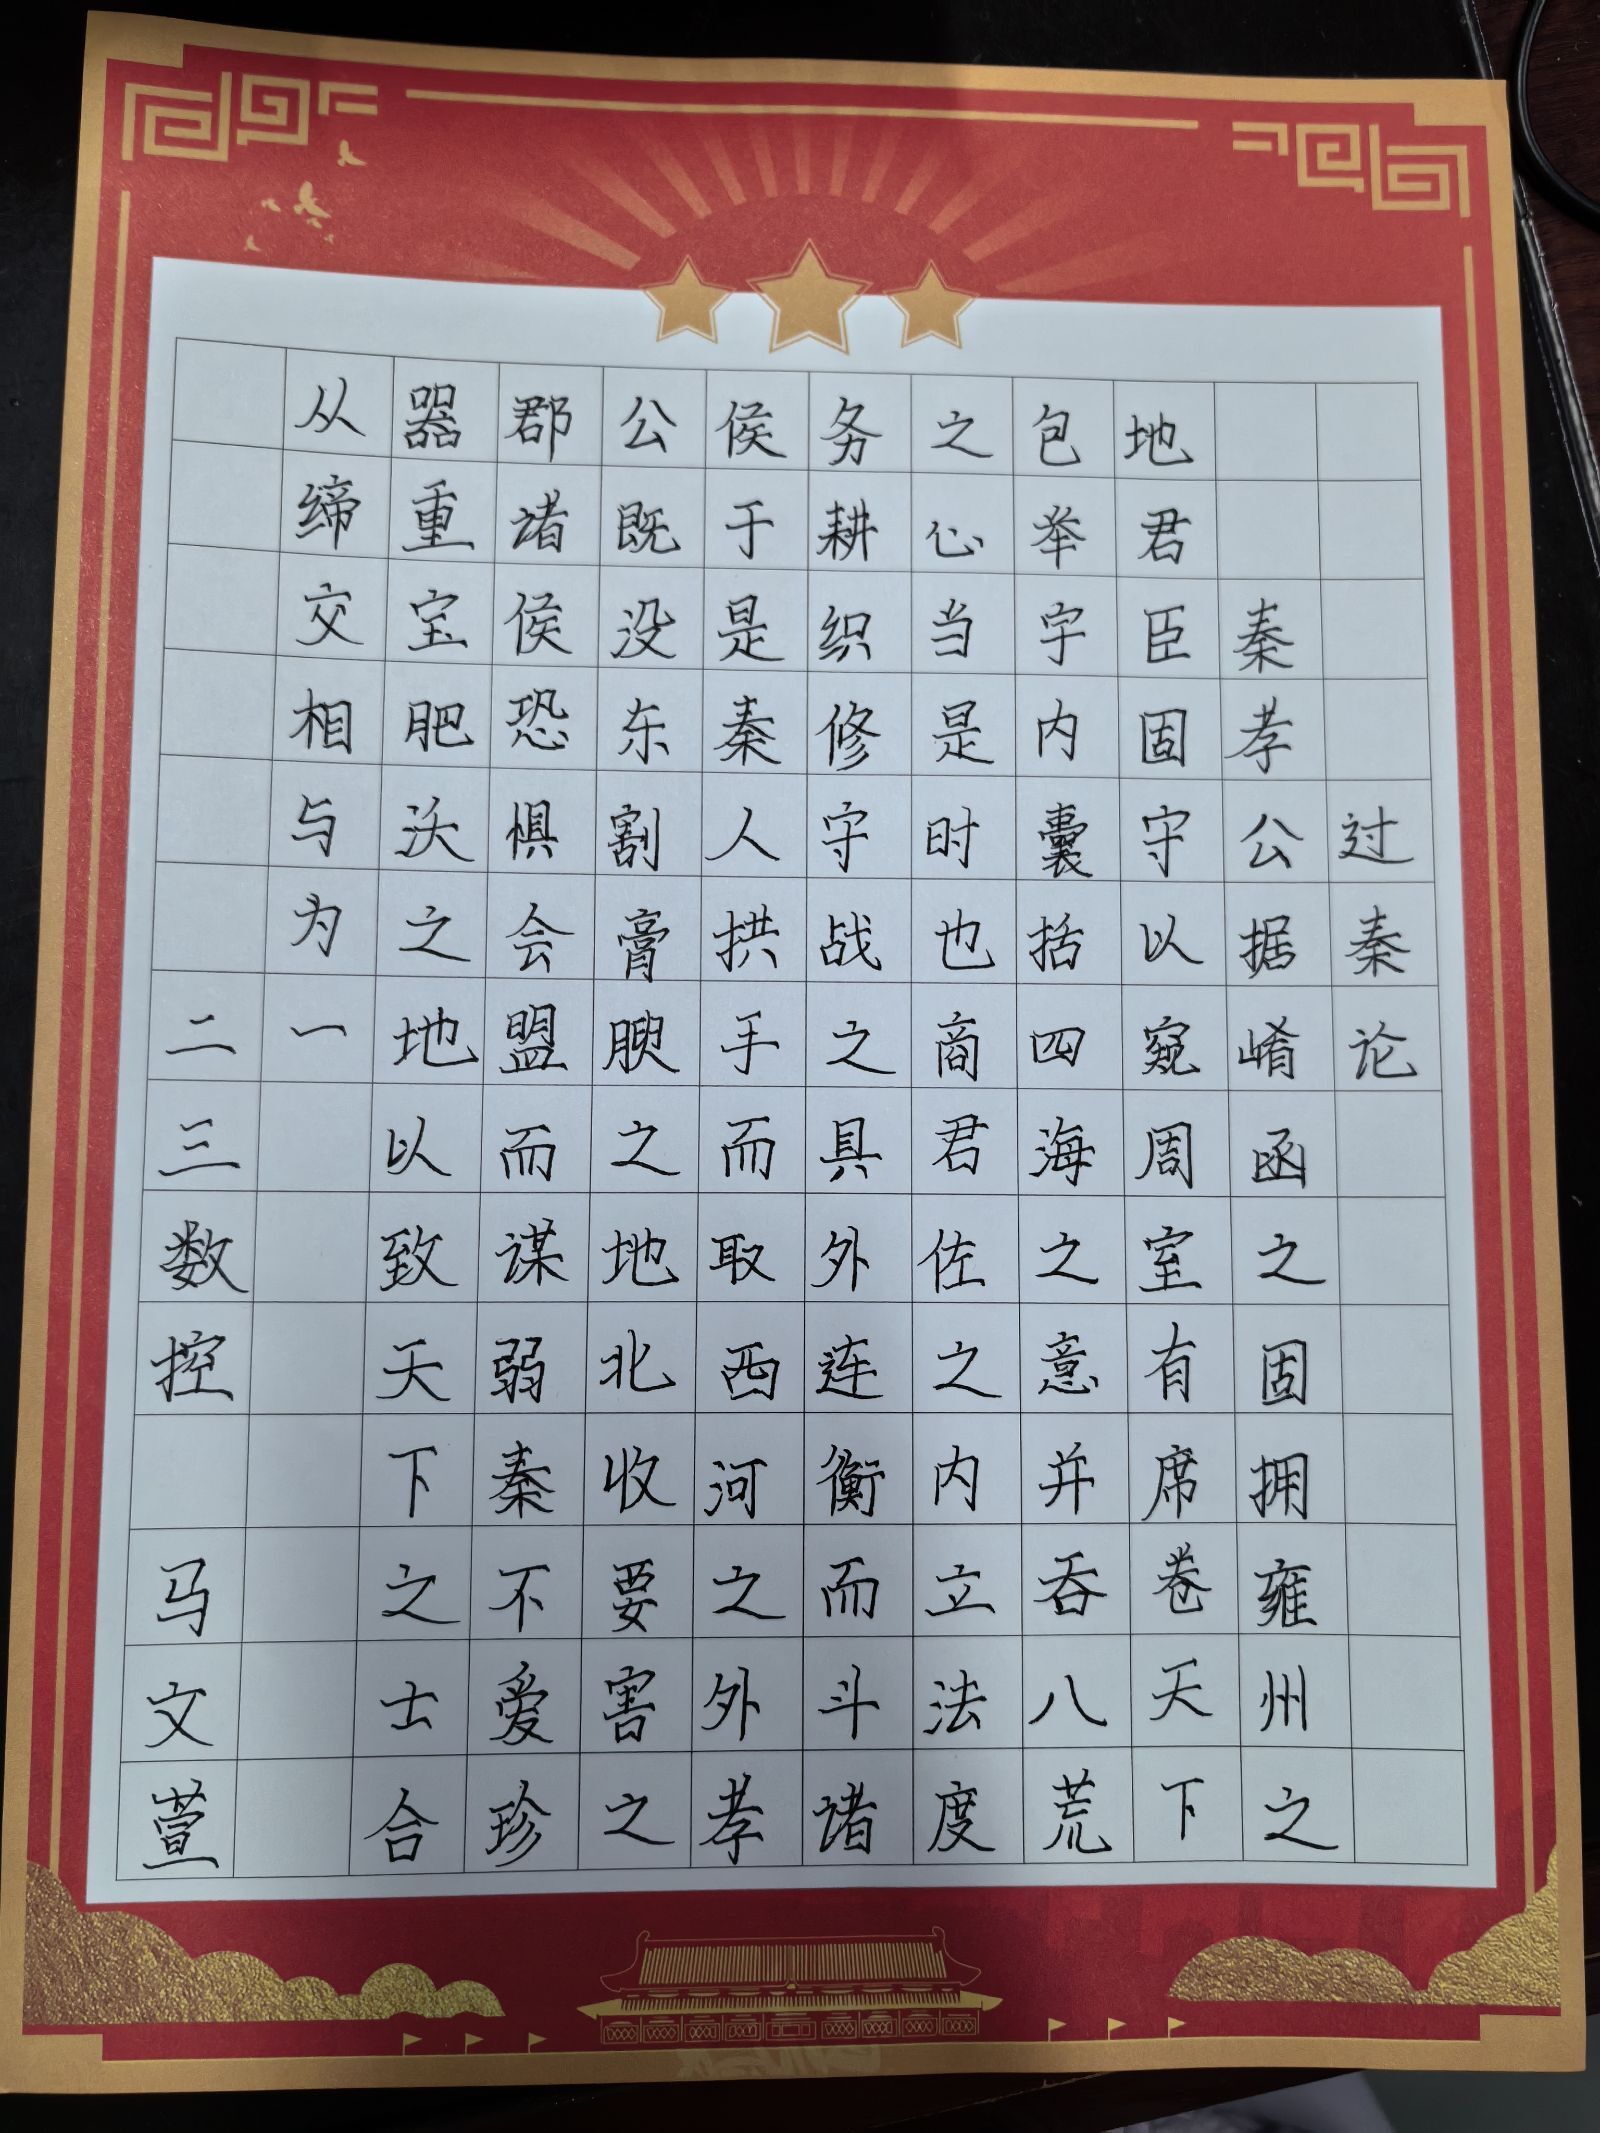 过秦论
秦孝公据崤函之固拥雍州之
地君臣固守以窥周室有席卷天下
包举宇内囊括四海之意并吞八荒
之心当是时也商君佐之内立法度
务耕织修守战之具外连衡而斗诸
侯于是秦人拱手而取西河之外孝
公既没东割膏腴之地北收要害之
郡诸侯恐惧会盟而谋弱秦不爱珍
器重宝肥沃之地以致天下之士合
从缔交相与为一
二三数控 马文萱